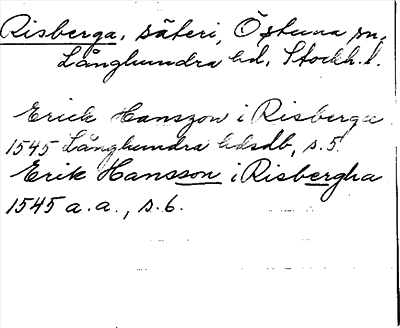 Risberga, säteri, Östuna sn,
Långhundra hd, Stockh. l.
Erick Hanszon i Risberga
1545 Långhundra hdsdb, s. 5.
Erik Hansson i Risbergha
1545 a. a., s. 6.